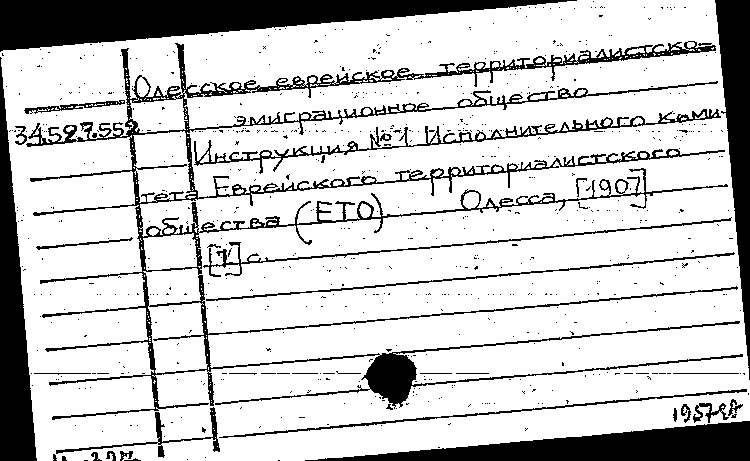 Одесское еврейское территориалистско-
эмиграционное общество
34.527.552
Инструкция №1 Исполнительного коми-
тета Еврейского территориалистского
общества (ЕТО). Одесса, [1907].
[7] с.